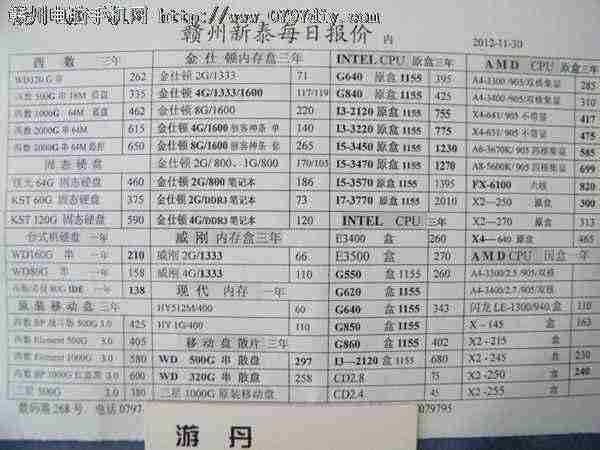 赣州电脑手机网 http://www.0797diy.com
赣州新泰每日报价 内 2012-11-30
西数 三年 金仕顿内存盘三年 INTEL CPU 原盒三年 AMD CPU 原盒三年
WD320G 串 262 金仕顿 2G/1333 71 G640 原盒 1155 395 A4-3300 /905/双核集显 285
西数 500G 串 16M 蓝盘 335 金仕顿 4G/1333/1600 117/119 G840 原盒 1155 425 A4-3400 /905/双核集显 310
西数 1000G 64M 蓝盘 462 金仕顿 8G/1600 220 I3-2120 原盒 1155 755 X4-641/ 905 不带显 417
西数 2000G 串 64M 615 金仕顿 4G/1600 骇客神条 单 140 I3-3220 原盒 1155 775 X4-651/ 905 不带显 475
西数 2000G 串 64M 650 金仕顿 8G/1600 骇客神条 套 265 I5-3450 原盒 1155 1230 A6-3670K/ 905 四核集显 585
固态硬盘 金仕顿 2G/800、1G/800 170/105 I5-3470 原盒 1155 1270 A8-5600K/ 四核集显 699
64G 固态硬盘 460 金仕顿 2G/800 笔记本 186 I5-3570 原盒 1155 1395 FX-6100 六核 820
KST 60G 固态硬盘 375 金仕顿 2G/DDR3 笔记本 73 I7-3770 原盒 1155 2010 X2—250 原盒 300
KST 120G 固态硬盘 590 金仕顿 4G/DDR3 笔记本 120 INTEL CPU 三年 X2—270 原盒 313
台式机硬盘 一年 威刚 内存盒三年 E3400 盒 260 X4—640 原盒 465
WD160G 串 一年 210 威刚 2G/1333 66 E3500 盒 270 AMD CPU 一年
WD80G 串 一年 158 威刚 4G/1333 110 G550 盒 1155 260 A4-3300/2.5/ 905/双核
80G IDE 一年 138 现代 内存 一年 G620 盒 1155 A4-3400/2.7/ 905/双核
原装移动盘 三年 HY512M/400 60 G640 盒 1155 343 闪龙 LE-1300/940 盒 110
500G 3.0 425 HY 1G/400 110 G850 盒 1155 X－145 盒 163
西数 Element 500G 3.0 405 移动盘散片 三年 G860 盒 1155 402 X2 -215 盒
西数 Element 1000G 3.0 580 WD 500G 串 散盘 297 I3—2120 盒 1155 680 X2 -245 盒 230
西数 BP 1000G 3.0 600 WD 320G 串 散盘 258 CD2.8 75 X2 -250 盒 240
三星 500G 3.0 380 三星 1000G 原装移动盘 CD2.4 45 X2 -255 盒
数码幕 268 号 电话 0797- 079795
游 丹